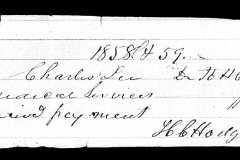 1858 & 59.
Charles Lee Dr to H C
Medical Services
ived payment
H C Hodg